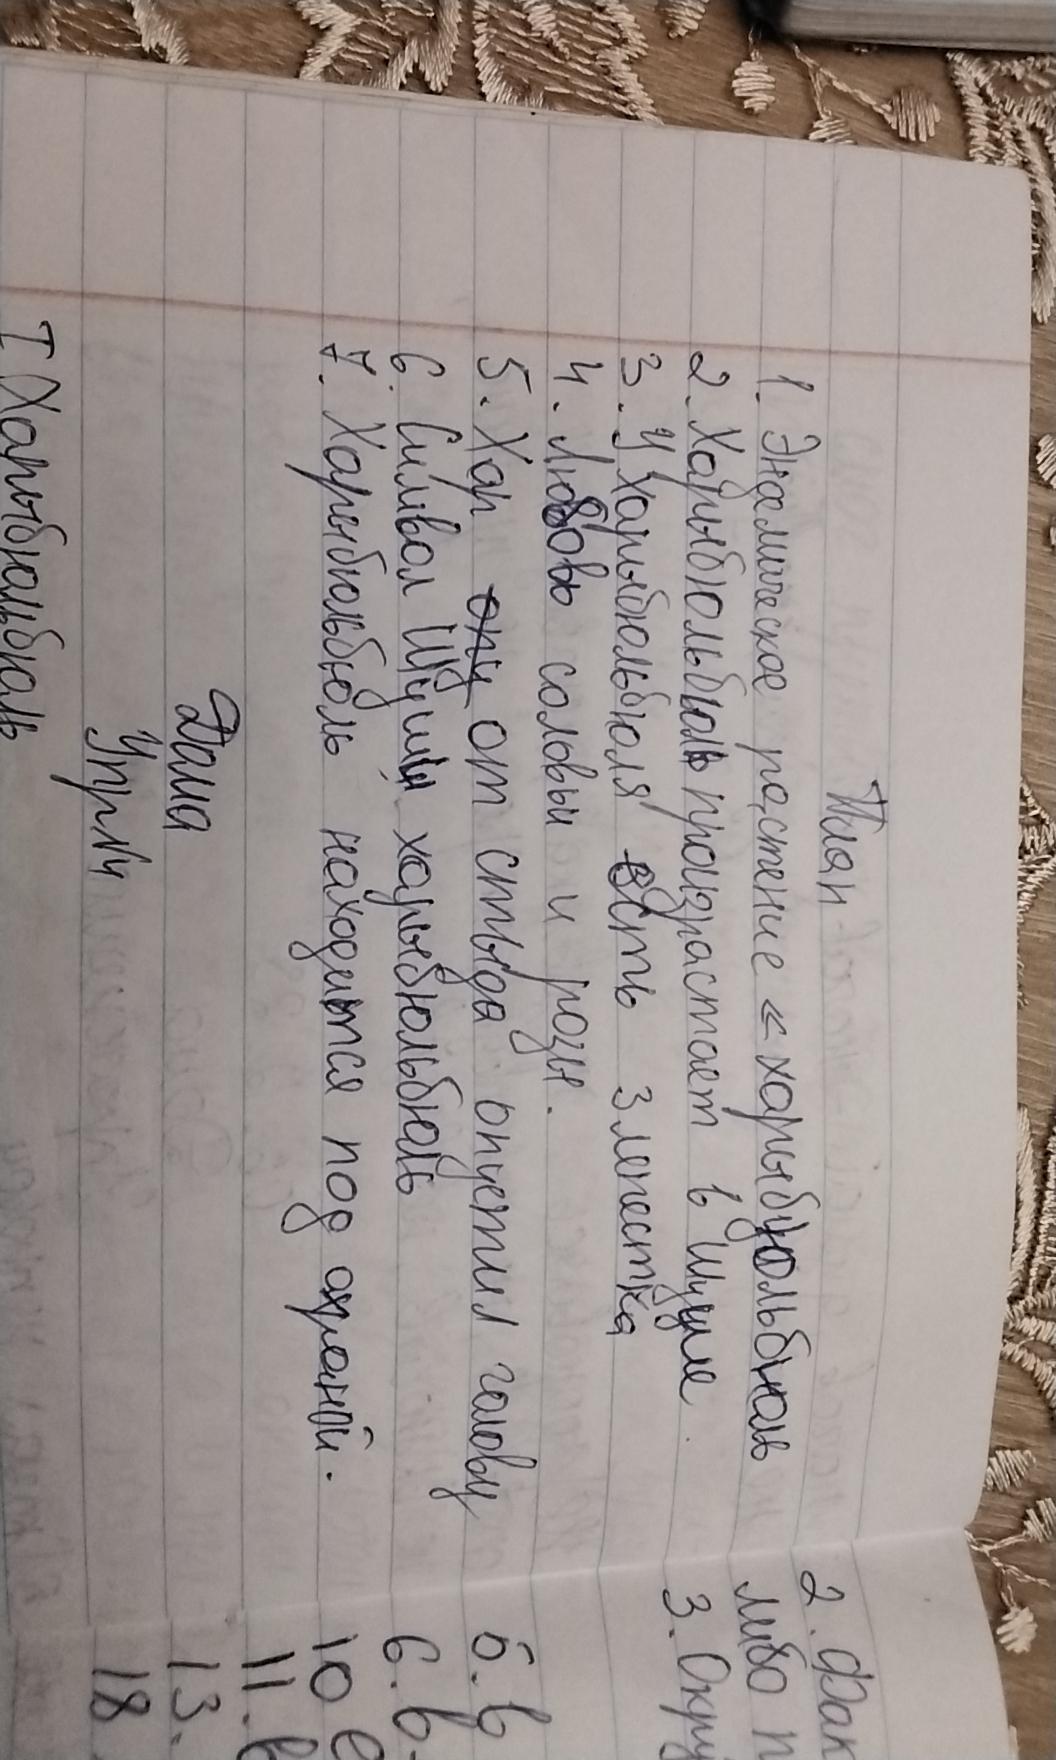 План
1. Эндемическое растение « харыбюльбюль
2. Харыбюльбюль произрастает в Шуше.
3. У харыбюльбюля есть 3 лепестка
4. Любовь соловьи и розы.
5. Хар опу от стыда опустил голову
6. Символ Шуши харыбюльбюль
7. Харыбюльбюль находится под охраной.
Дома
Упр№4
I Харыбюльбюль
2. Фак
либо п
3. Окру
5. в
6. в.
10 е
11. в
13.
18